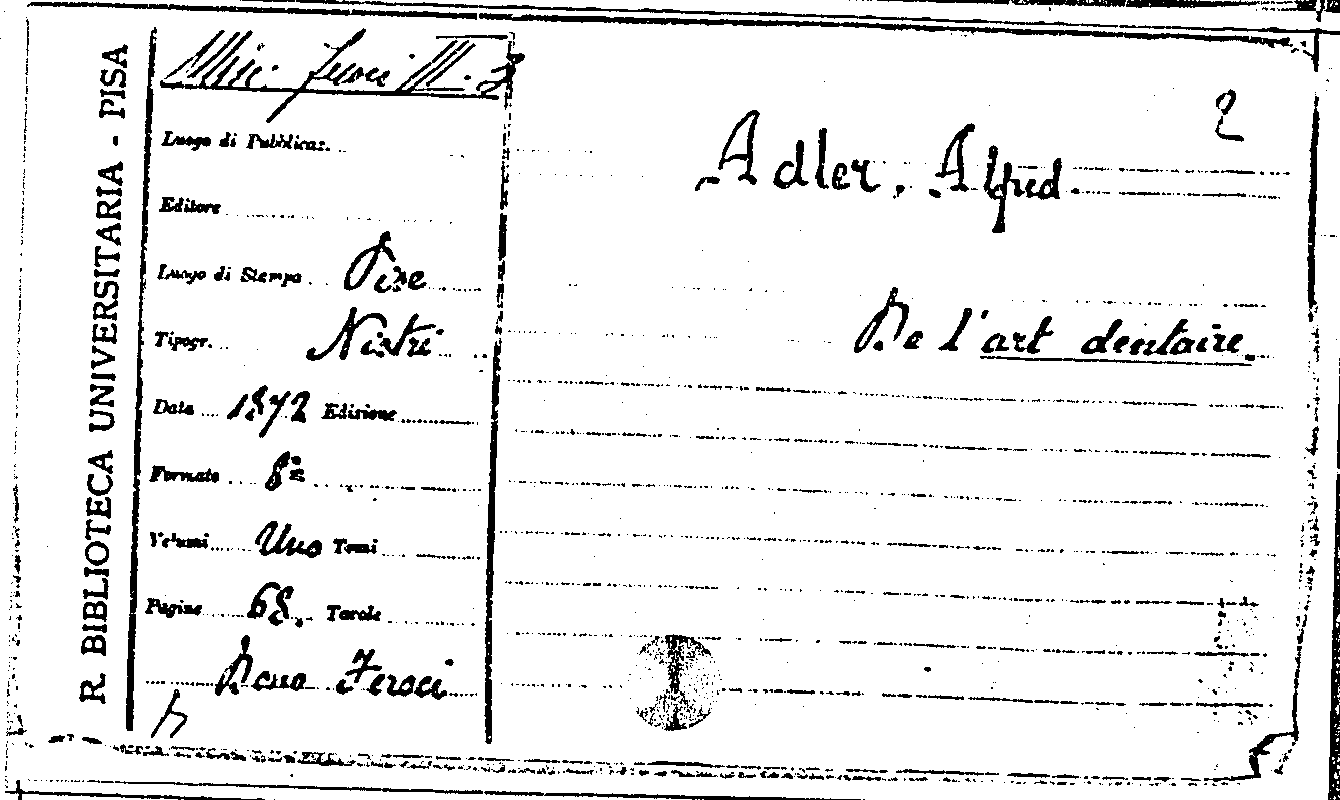 R. BIBLIOTECA UNIVERSITARIA - PISA
Misc. Feroci III. 3
2
Luogo di Pubblicaz.
Adler, Alfred.
Editore
Luogo di Stampa Pise
De l'art dentaire.
Tipogr. Nistri
Data 1872 Edizione
Formato 8º
Volumi Uno Tomi
Pagine 68. Tavole
Dono Feroci